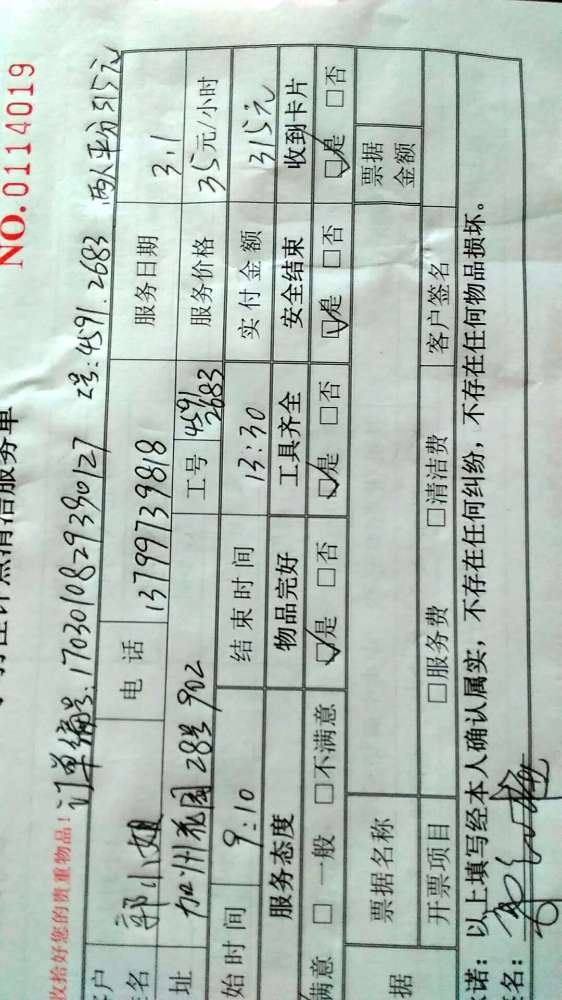 NO.0114019
清洁服务单
收拾好您的贵重物品! 订单编号: 1703010829390127 工号: 4591. 2683 两人平分315元
郭小姐 电话 13799739818 服务日期 3.1
址 加州花园28号902 工号 4591 2683 服务价格 35元/小时
始时间 9:10 结束时间 13:30 实付金额 315元
服务态度 物品完好 工具齐全 安全结束 收到卡片
满意 □ 一般 □不满意 ☑是 □否 ☑是 □否 ☑是 □否 ☑是 □否
据 票据名称 票据金额
开票项目 □服务费 □清洁费 客户签名
诺: 以上填写经本人确认属实, 不存在任何纠纷, 不存在任何物品损坏。
名: